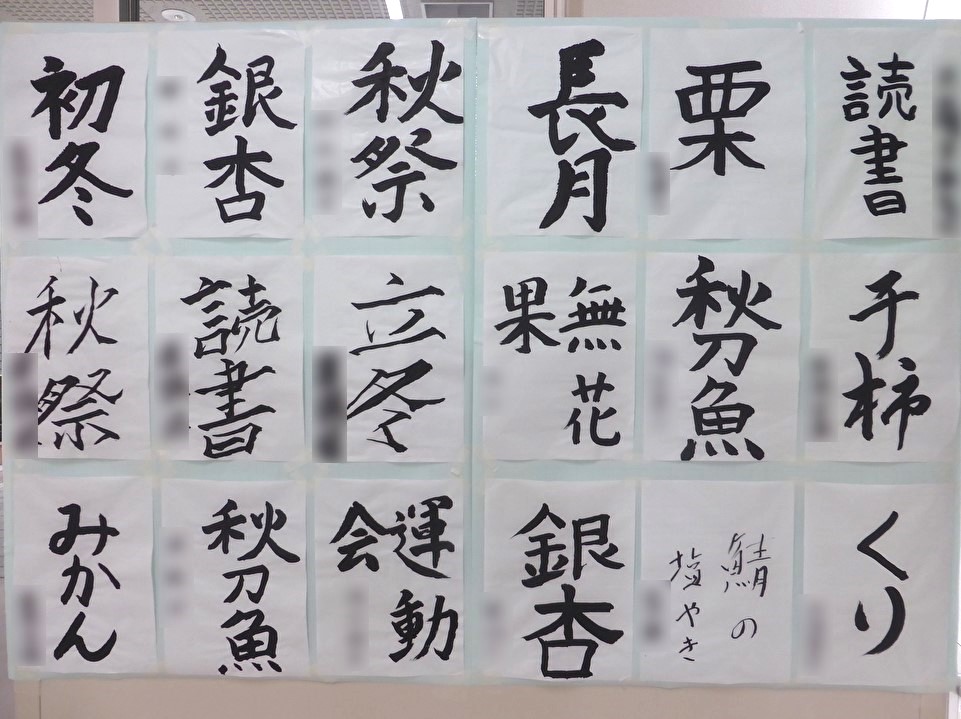 読書
栗
長月
秋祭
銀杏
初冬
干柿
秋刀魚
無花
果
立冬
読書
秋祭
くり
鯖の
塩やき
銀杏
運動
会
秋刀魚
みかん